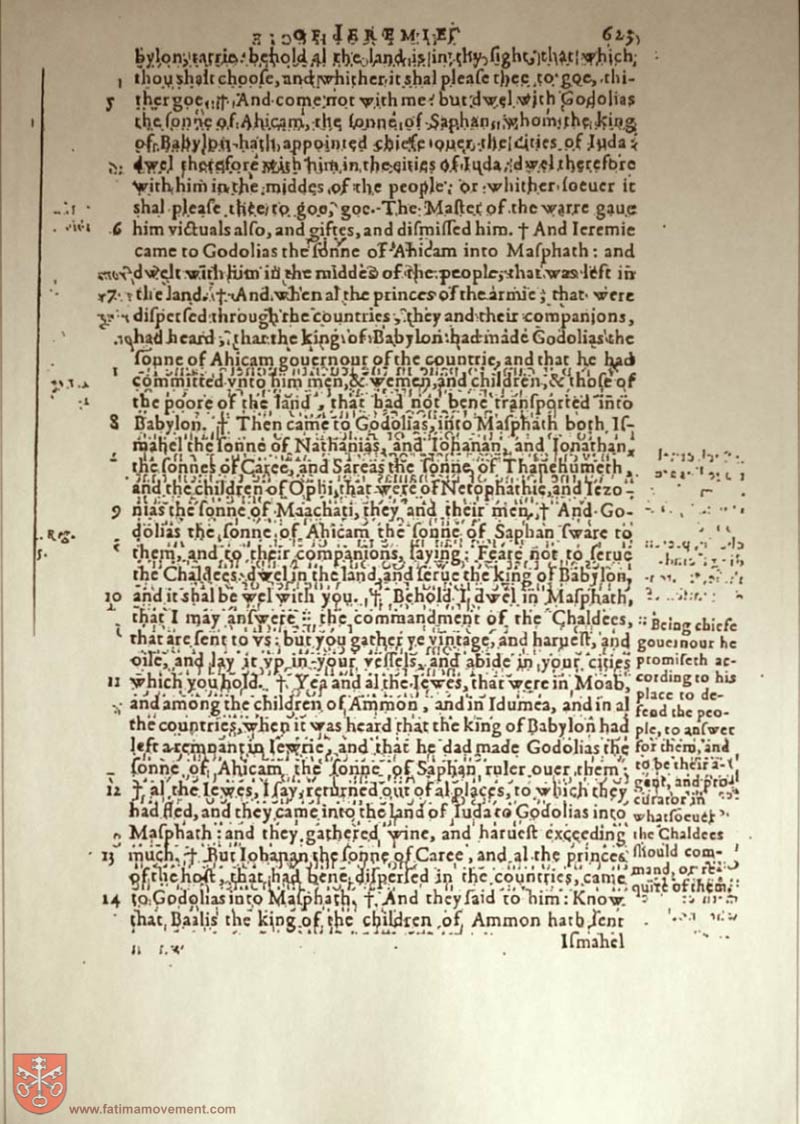 OF IEREMIE.
625
bylon, tarrie: behold al the land is in thy sight, that which
thou shalt choose, and whither it shal please thee to goe, thi-
5 ther goe. † And come not with me: but dwel with Godolias
the sonne of Ahicam, the sonne of Saphan, whom the king
of Babylon hath appointed chiefe ouer the cities of Iuda:
dwel therefore with him in the cities of Iuda, dwel therefore
with him in the middes of the people: or whither soeuer it
shal please thee to goe, goe. The Master of the warre gaue
6 him victuals also, and giftes, and dismissed him. † And Ieremie
came to Godolias the sonne of Ahicam into Masphath: and
dwelt with him in the middes of the people, that was left in
7 the land. † And when al the princes of the armie, that were
dispersed through the countries, they and their companions,
had heard, that the king of Babylon had made Godolias the
sonne of Ahicam gouernour of the countrie, and that he had
committed vnto him men, & wemen, and children, & those of
the poore of the land, that had not bene transported into
8 Babylon. † Then came to Godolias, into Masphath both Is-
mahel the sonne of Nathanias, and Iohanan, and Ionathan,
the sonnes of Caree, and Sareas the sonne of Thanehumeth,
and the children of Ophi, that were of Netophathie, and Iezo-
9 nias the sonne of Maachati, they and their men. † And Go-
dolias the sonne of Ahicam the sonne of Saphan sware to
them, and to their companions, saying: Feare not to serue
the Chaldees: dwel in the land, and serue the king of Babylon,
10 and it shal be wel with you. † Behold I dwel in Masphath,
that I may answere :: the commandment of the Chaldees,
that are sent to vs: but you gather ye vintage, and haruest, and
oile, and lay it vp in your vessels, and abide in your cities
11 which you hold. † Yea and al the Iewes, that were in Moab,
and among the children of Ammon, and in Idumea, and in al
the countries, when it was heard that the king of Babylon had
left a remnant in Iewrie, and that he dad made Godolias the
sonne of Ahicam the sonne of Saphan ruler ouer them:
12 † al the Iewes, I say, returned out of al places, to which they
had fled, and they came into the land of Iuda to Godolias into
Masphath: and they gathered wine, and haruest exceeding
13 much. † But Iohanan the sonne of Caree, and al the princes
of the host, that had bene dispersed in the countries, came
14 to Godolias into Masphath. † And they said to him: Know
that Baalis the king of the children of Ammon hath sent
Ismahel
Reg.
:: Being chiefe
gouernour he
promiseth ac-
cording to his
place to de-
fend the peo-
ple, to answer
for them, and
to be their a-
gent, and pro-
curator in
whatsoeuer
the Chaldees
should com-
mand, or re-
quire of them.
www.fatimamovement.com